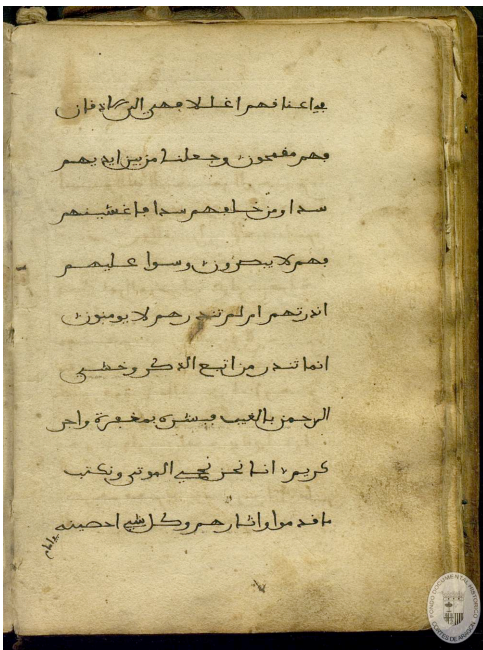 في اعنافهم اغللا فهى الى الادفان
فهم مقمحون وجعلنا من بين ايديهم
سدا ومن خلفهم سدا فاغشينهم
فهم لا يبصرون وسوا عليهم
انذرتهم ام لم تنذرهم لا يومنون
انما تنذر من اتبع الذكر وخشي
الرحمن بالغيب فبشره بمغفرة واجر
كريم انا نحن نحيي الموتى ونكتب
ما قدموا واثارهم وكل شي احصينه
في امام
FONDO DOCUMENTAL HISTÓRICO
CORTES DE ARAGÓN